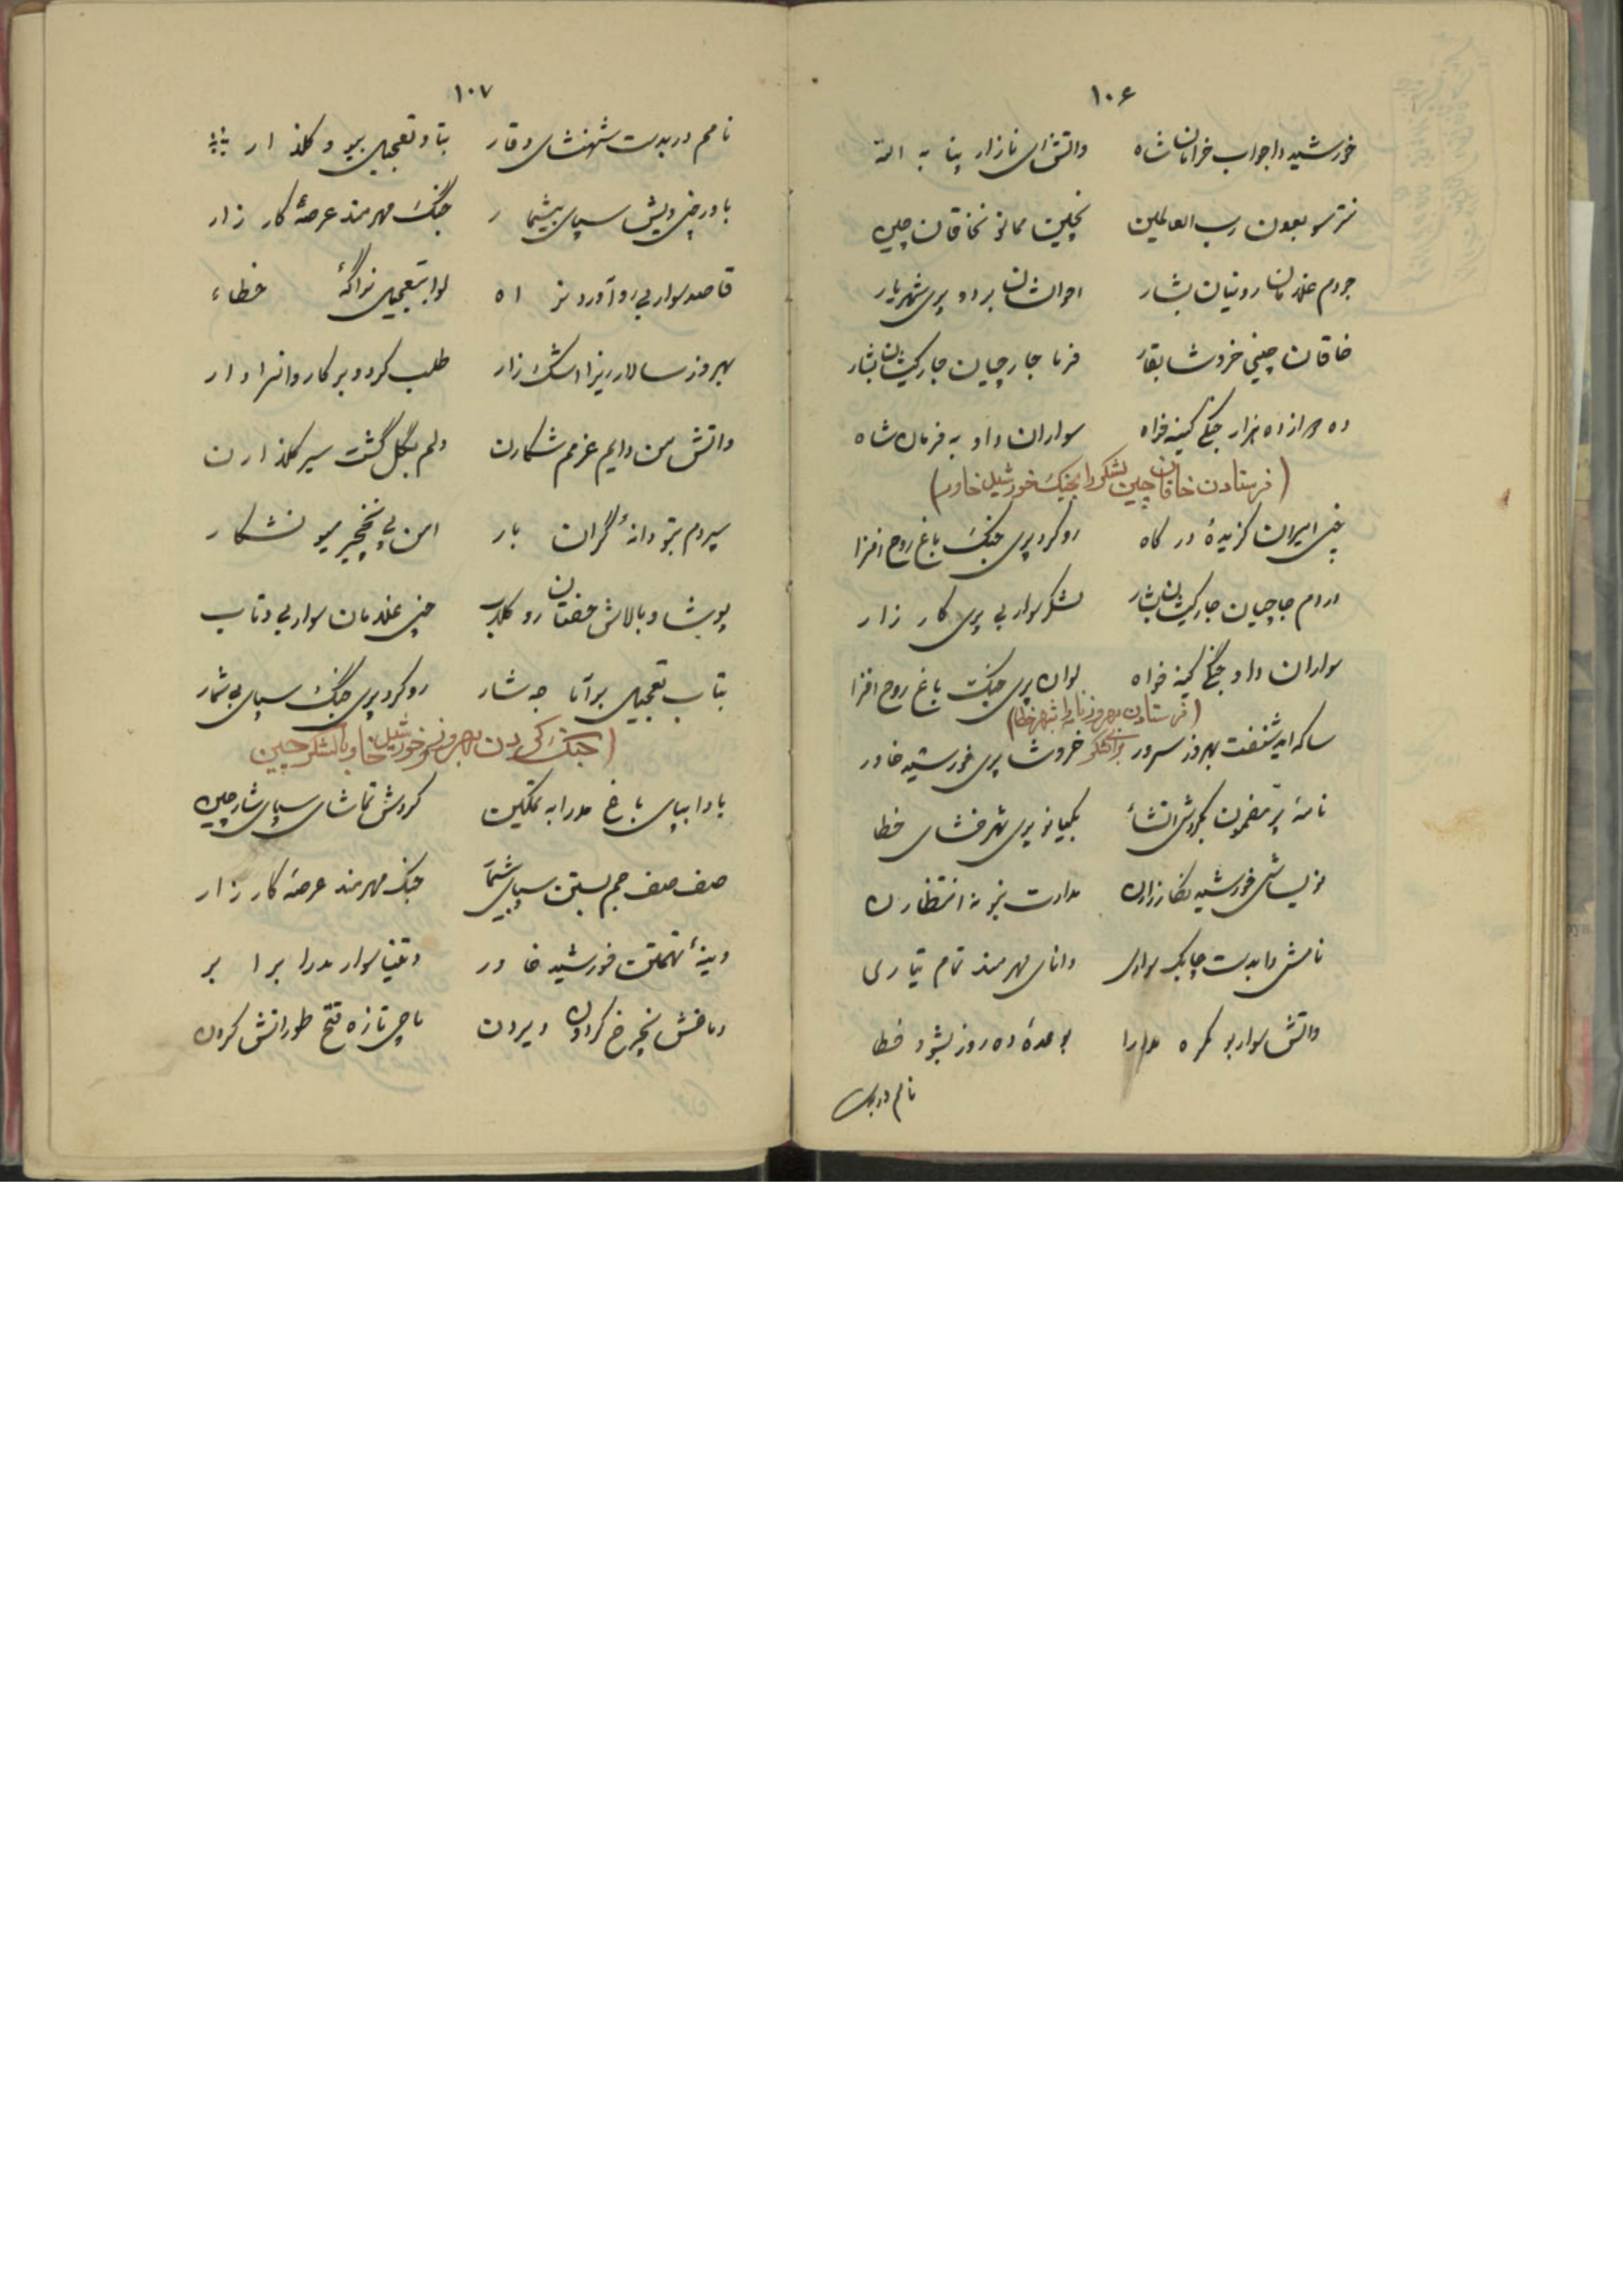 ۱۰۶
خورشید دا جواب خرامان شاه واتش ای نازار پنا به الله
نترسو بعون رب العالمین نچلیت ممانو نخاقان چین
جردم غلامان رونیان بشار احوالشان برد و پری شهریار
خاقان چینی خروشا بقار فرما جارچیان جار کیشان بشار
ده هزار جنگی کینه خواه سواران داد به فرمان شاه
(فرستادن خاقان چین لشکر را بجنگ خورشید خاور)
چنی ایران گزیدهٔ درگاه رو کرد پری جنگ باغ روح افزا
دردم جاچیان جار کیشان بشار لشکر سوار بی پری کار زار
سواران داد جنگی کینه خواه لوان پری جنگ باغ روح افزا
(فرستادن بهروز نامه را بشهر خطا برای لشکر)
ساکه اید شنفت بهروز سرور خروشا پری خورشید خاور
نامهٔ پر مضمون بکردش انشاء بکیانو پری شهر خشای خطا
نویساش خورشید نظارزاران مدارت نبو نه انتظاران
نامش دا بدست چابک سواری دانای هرمند تمام تیاری
واتش سوار بو نکره مدارا بوعدهٔ ده روز بشو خطا
نامم دربدست
۱۰۷
نامم در بدست شهنشای وقار بتاو تعجیل بیو و گلذار
باور چنی ویش سپای بیشمار جنگ هرمند عرصهٔ کار زار
قاصد سوار بی رو آورد نه راه لوا بتعجیل نراگهٔ خطاء
بهروز سالار ریزا اشک زار طلب کرد و بر کاروانسرادار
واتش من دایم عزمم شکارن دلم بگل گشت سیر گلذارن
سپردم بتو دانهٔ گران بار من پی نخچیر میو نشکار
پوشا و بالاش خفتان رو کلاب چنی غلامان سوار بی و تاب
بتاب تعجیل برآما جه شار رو کرد پری جنگ سپای بی شمار
(جنگ کردن بهروز و خورشید خاور با لشکر چین)
یاوا بپای باغ مدرا به تمکین کردش تماشای سپای شار چین
صف صف جم بستن سپای بیشمار جنگ هرمند عرصهٔ کار زار
وینهٔ تهمتن خورشید خاور و تنیا سوار مدرا برابر
دماخش نچرخ گردون ویردن ماچی تازه فتح طورانش کردن